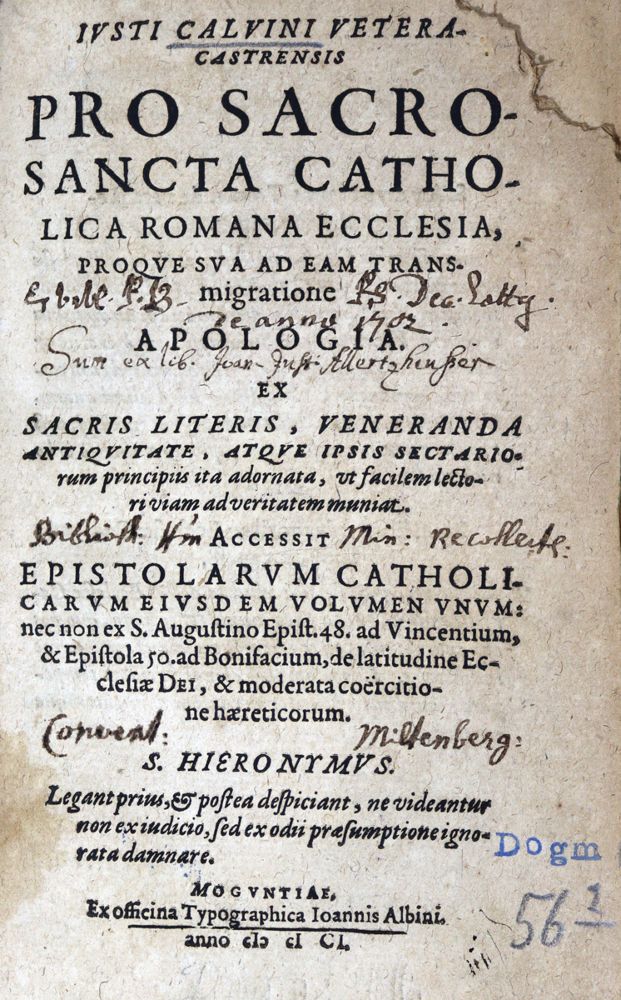 IVSTI CALVINI VETERA-
CASTRENSIS
PRO SACRO-
SANCTA CATHO-
LICA ROMANA ECCLESIA,
PROQVE SVA AD EAM TRANS-
migratione
de anno 1702.
APOLOGIA.
Sum ex lib. Joan. Just.
EX
SACRIS LITERIS, VENERANDA
ANTIQVITATE, ATQVE IPSIS SECTARIO-
rum principiis ita adornata, vt facilem lecto-
ri viam ad veritatem muniat.
Biblioth: ACCESSIT Min: Recollect:
EPISTOLARVM CATHOLI-
CARVM EIVSDEM VOLVMEN VNVM:
nec non ex S. Augustino Epist. 48. ad Vincentium,
& Epistola 50. ad Bonifacium, de latitudine Ec-
clesiæ DEI, & moderata coërcitio-
ne hæreticorum.
Convent: Miltenberg:
S. HIERONYMVS.
Legant prius, & postea despiciant, ne videantur
non ex iudicio, sed ex odii præsumptione igno-
rata damnare.
Dogm
MOGVNTIAE,
Ex officina Typographica Ioannis Albini.
anno cIↄ cI CI.
56